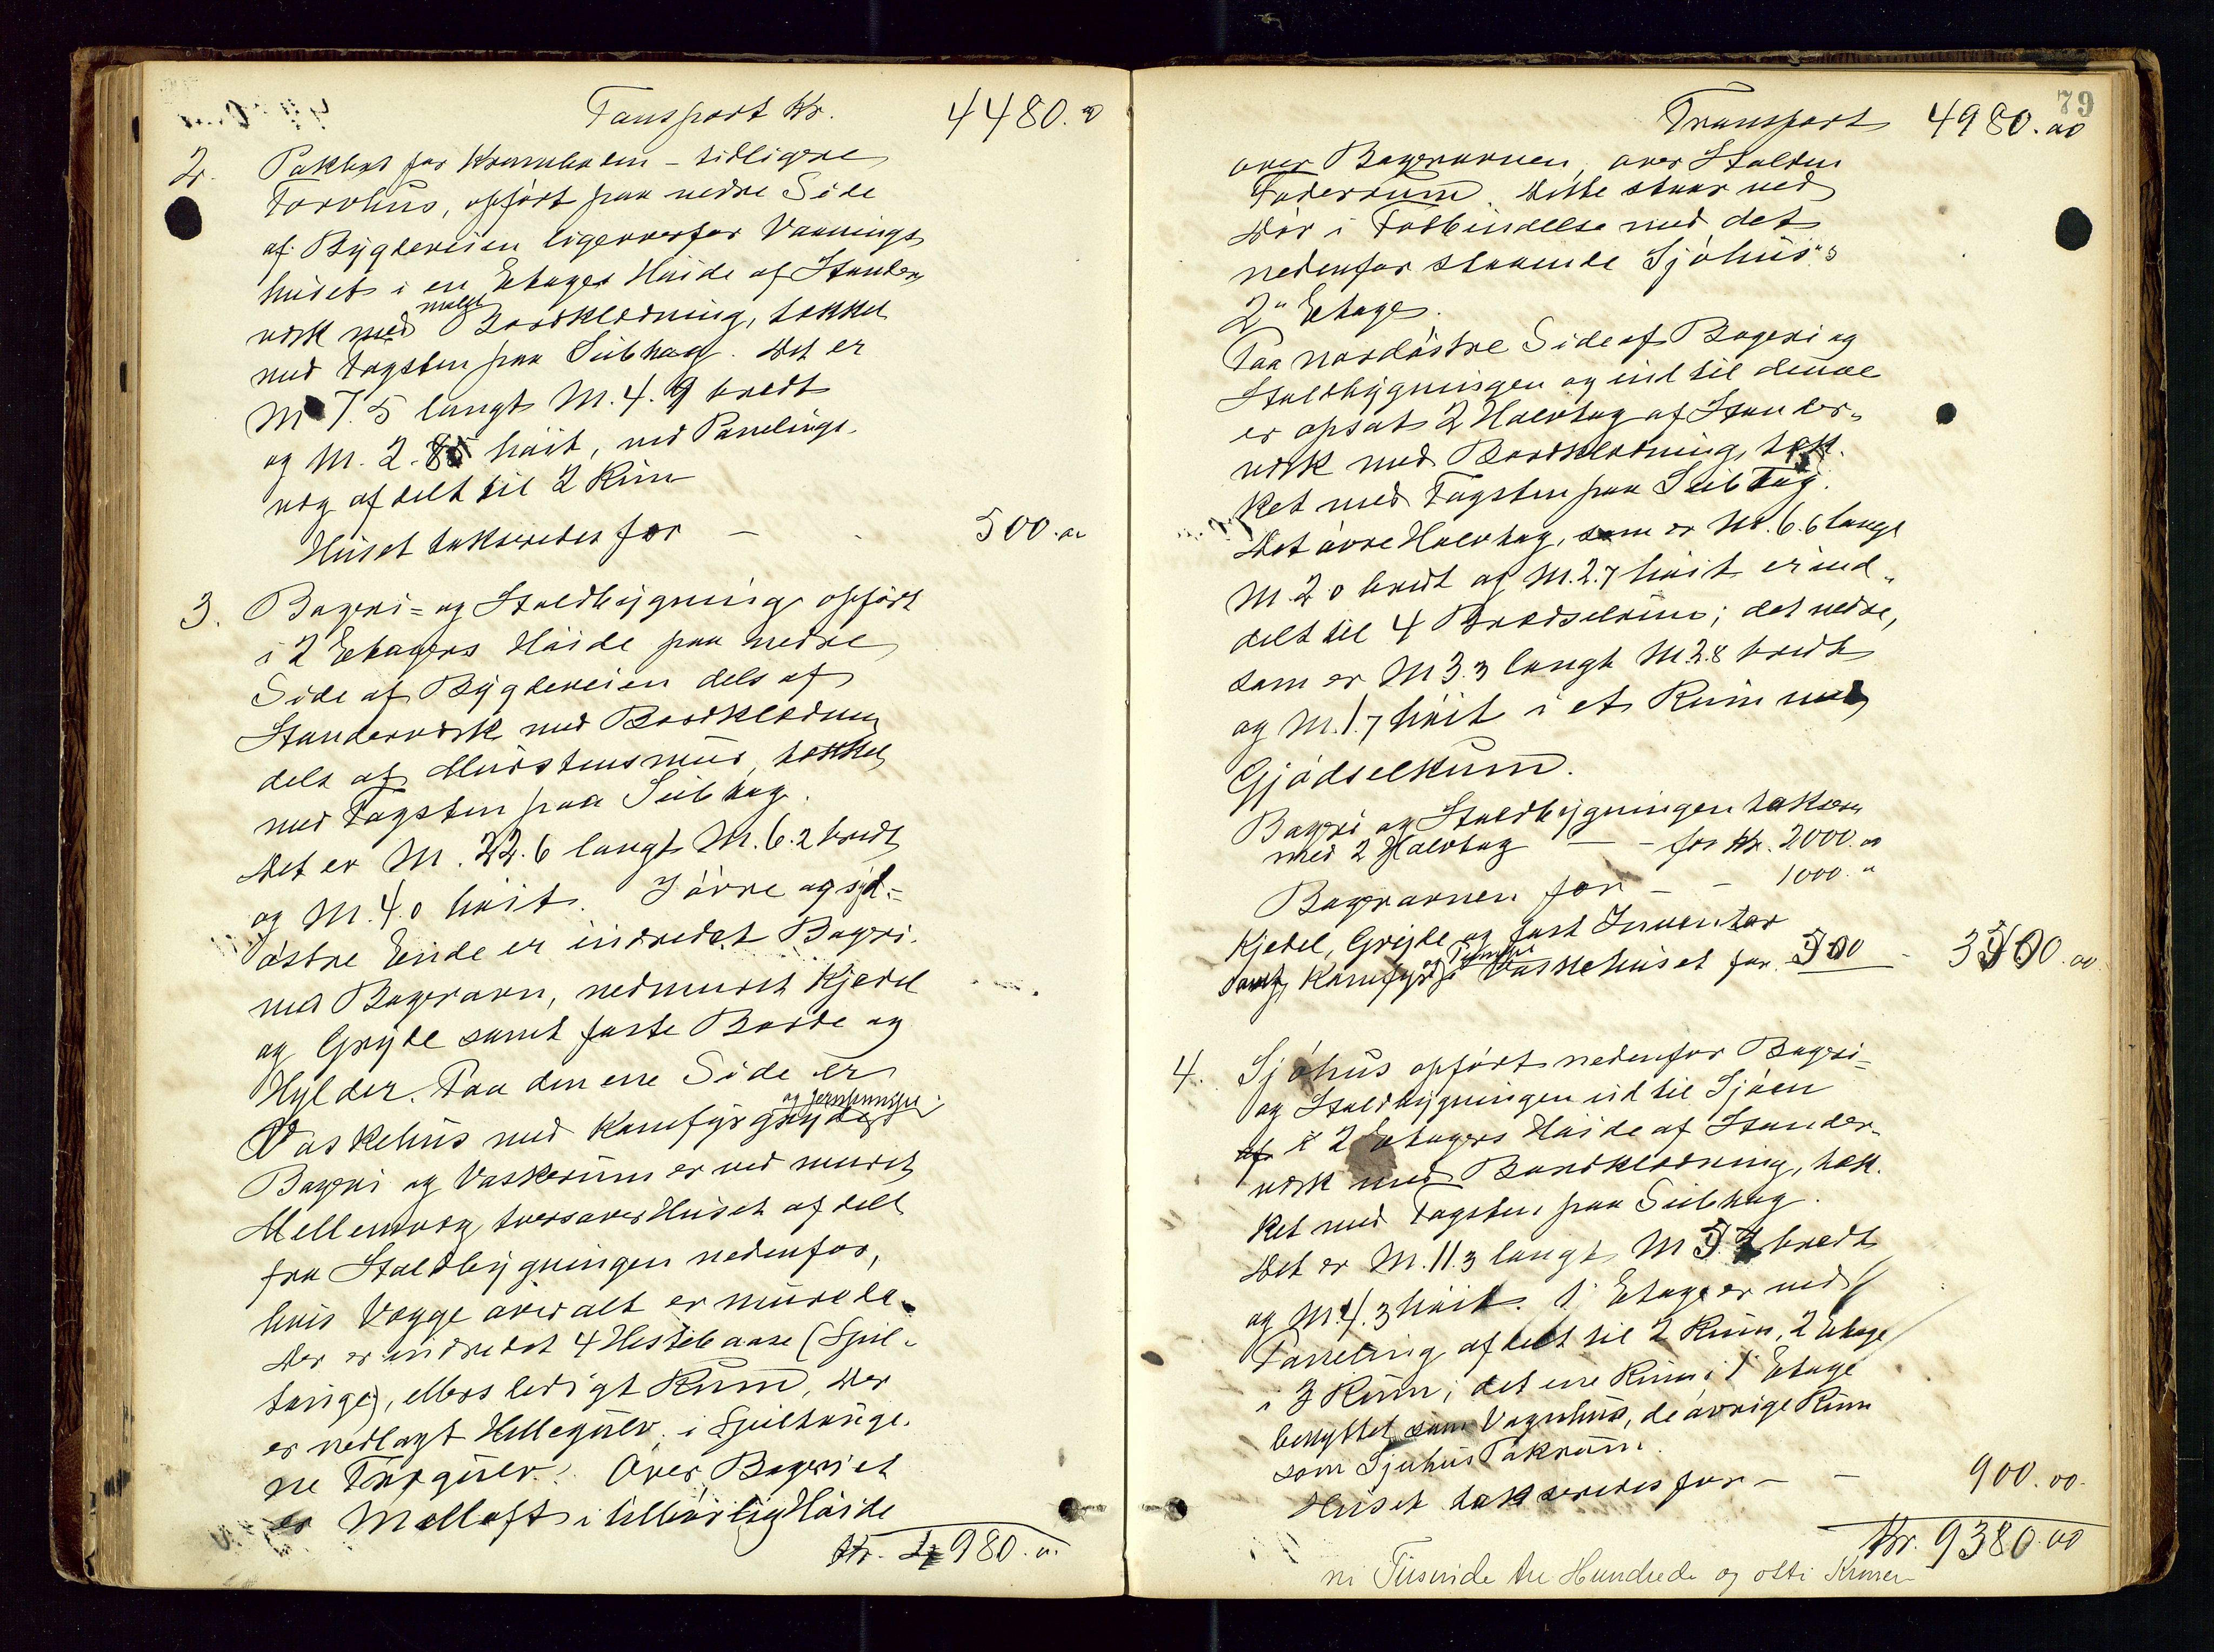 Transport Kr. 4480.00
2. Pakbod for Kramboden - tidligere
Torvhus, opfört paa nedre Side
af Bygdeveien ligeoverfor Vaanings
huset i en Etages Höide af Stander
værk med malet Bordklædning, tækket
med Tagsten paa Sutag. Det er
M 7.5 langt M. 4.9 bredt
og M. 2.85 höit, ved Panelings-
væg afdelt til 2 Rum
Huset takseredes for - 500.00
3. Bageri= og Staldbygning opfört
i 2 Etagers Höide paa nedre
Side af Bygdeveien dels af
Standerværk med Bordklædning
dels af Murstensmur, tækket
med Tagsten paa Sutag.
Det er M. 22.6 langt M. 6.2 bredt
og M. 4.0 höit. I övre og syd=
östre Ende er indredet Bageri
med Bagerovn, nedmuret Kjedel
og Gryde samt faste Borde og
Hylder. Paa den ene Side er
Vaskehus med Komfyr gryde og Jernpumpe
Bageri og Vaskerum er ved muret
Mellemvæg tversover Huset afdelt
fra Staldbygningen nedenfor,
hvis Vægge overalt er murede.
Der er indredet 4 Hestebaase (Spil-
tauge), ellers ledigt Rum. Der
er nedlagt Hellegulv i Spiltauge.
ne Trægulv. Over Bageriet
er Melloft i tilbörlig Höide
Kr. 4980.00
79
Transport 4980.00
over Bagerovnen, over Stalden
Foderrum. Dette staar ved
Dör i Forbindelse med det
nedenfor staaende Sjöhus's
2" Etage.
Paa nordöstre Side af Bageri og
Staldbygningen og ind til denne
er opsat 2 Halvtag af Stander-
værk med Bordklædning, tæk-
ket med Tagsten paa Sutag.
Det övre Halvtag, som er M. 6.6 langt
M. 2.0 bredt og M. 2.7 höit er ind-
delt til 4 Brædselrum; det nedre,
som er M 3.3 langt M. 2.8 bredt
og M. 1.7 höit i et Rum med
Gjödselkum.
Bageri og Staldbygningen takseres
med 2 Halvtag - - for Kr. 2000.00
Bagerovnen for - - 1000.00
Kjedel, Gryde og fast Inventar
samt Komfyr og Pumpe i Vaskehuset for 500 - 3500.00
4. Sjöhus opfört nedenfor Bageri=
og Staldbygningen ud til Sjöen
af i 2 Etagers Höide af Stander-
værk med Bordklædning, tæk-
ket med Tagsten paa Sutag.
Det er M. 11.3 langt M 5.7 bredt
og M. 4.3 höit. 1' Etage er ved
Paneling afdelt til 2 Rum, 2' Etage
i 3 Rum; det ene Rum i 1' Etage
benyttet som Vognhus, de övrige Rum
som Sjöhus Pakrum.
Huset takseredes for - - 900.00
Kr. 9380.00
ni Tusinde tre Hundrede og otti Kroner